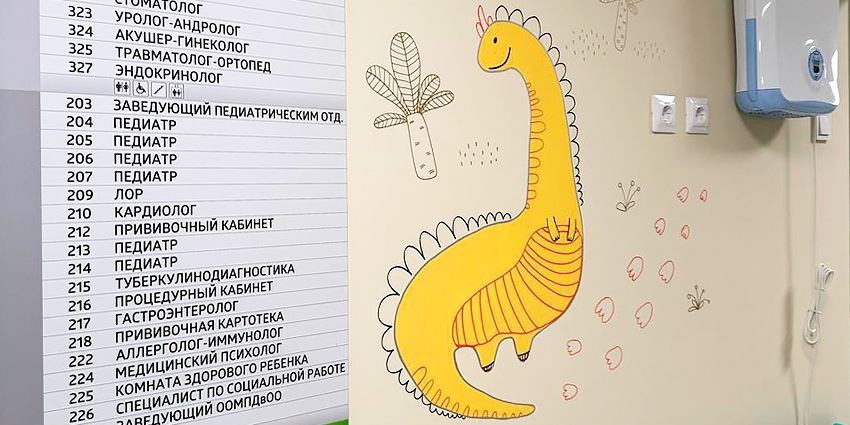 СТОМАТОЛОГ
323 УРОЛОГ-АНДРОЛОГ
324 АКУШЕР-ГИНЕКОЛОГ
325 ТРАВМАТОЛОГ-ОРТОПЕД
327 ЭНДОКРИНОЛОГ
203 ЗАВЕДУЮЩИЙ ПЕДИАТРИЧЕСКИМ ОТД.
204 ПЕДИАТР
205 ПЕДИАТР
206 ПЕДИАТР
207 ПЕДИАТР
209 ЛОР
210 КАРДИОЛОГ
212 ПРИВИВОЧНЫЙ КАБИНЕТ
213 ПЕДИАТР
214 ПЕДИАТР
215 ТУБЕРКУЛИНОДИАГНОСТИКА
216 ПРОЦЕДУРНЫЙ КАБИНЕТ
217 ГАСТРОЭНТЕРОЛОГ
218 ПРИВИВОЧНАЯ КАРТОТЕКА
222 АЛЛЕРГОЛОГ-ИММУНОЛОГ
224 МЕДИЦИНСКИЙ ПСИХОЛОГ
225 КОМНАТА ЗДОРОВОГО РЕБЕНКА
226 СПЕЦИАЛИСТ ПО СОЦИАЛЬНОЙ РАБОТЕ
ЗАВЕДУЮЩИЙ ООМПДвОО